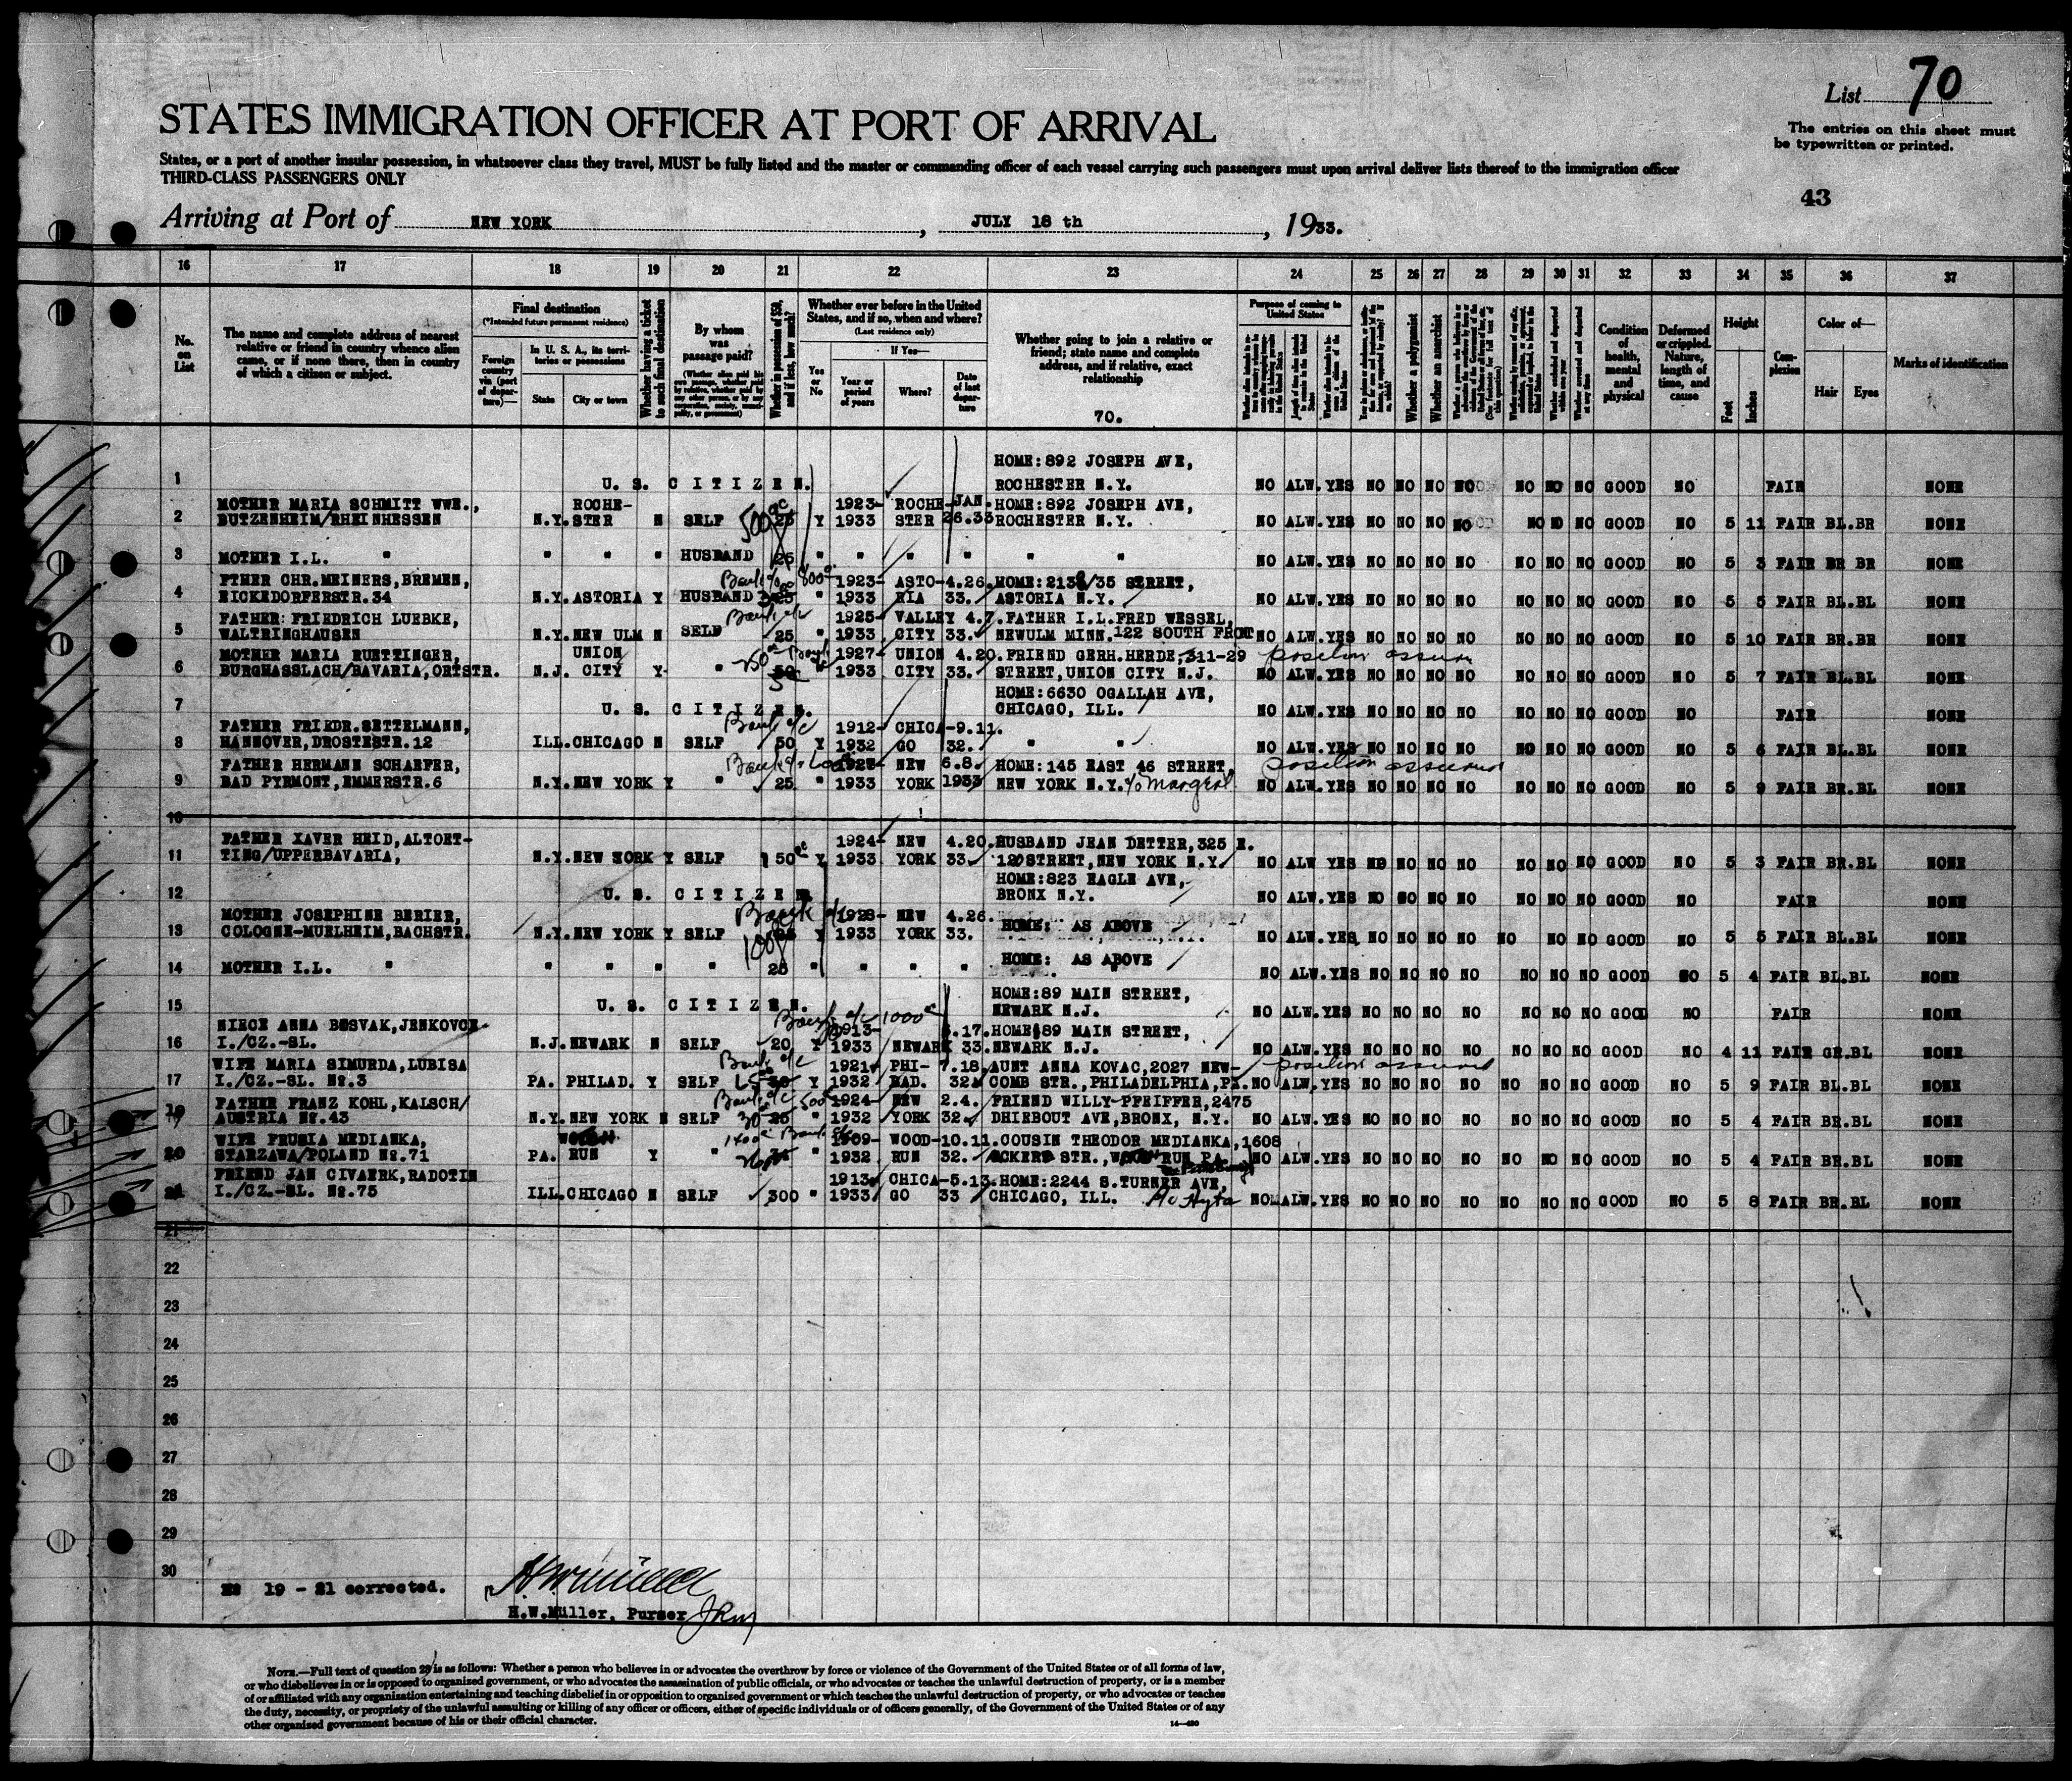 List 70
STATES IMMIGRATION OFFICER AT PORT OF ARRIVAL
The entries on this sheet must
be typewritten or printed.
States, or a port of another insular possession, in whatsoever class they travel, MUST be fully listed and the master or commanding officer of each vessel carrying such passengers must upon arrival deliver lists thereof to the immigration officer
THIRD-CLASS PASSENGERS ONLY
43
Arriving at Port of NEW YORK, JULY 18 th, 1933.
16 17 18 19 20 21 22 23 24 25 26 27 28 29 30 31 32 33 34 35 36 37
No. on List
The name and complete address of nearest relative or friend in country whence alien came, or if none there, then in country of which a citizen or subject.
Final destination
(*Intended future permanent residence)
Foreign country via (port of departure)—
In U. S. A., its territories or possessions
State
City or town
Whether having a ticket to such final destination
By whom was passage paid?
(Whether alien paid his own passage, whether paid by relative, whether paid by any other person, or by any corporation, society, municipality, or government)
Whether in possession of $50, and if less, how much?
Whether ever before in the United States, and if so, when and where?
(Last residence only)
Yes or No
If Yes—
Year or period of years
Where?
Date of last departure
Whether going to join a relative or friend; state name and complete address, and if relative, exact relationship
70.
Purpose of coming to United States
Whether a polygamist
Whether an anarchist
Condition of health, mental and physical
Deformed or crippled. Nature, length of time, and cause
Height
Feet Inches
Complexion
Color of—
Hair Eyes
Marks of identification
HOME:892 JOSEPH AVE,
1 U. S. CITIZEN. ROCHESTER N.Y. NO ALW.YES NO NO NO NO NO NO NO GOOD NO FAIR NONE
MOTHER MARIA SCHMITT WWE., ROCHE- 1923- ROCHE- JAN. HOME:892 JOSEPH AVE,
2 BUTZENHEIM/RHEINHESSEN N.Y. STER N SELF 25 Y 1933 STER 26.33 ROCHESTER N.Y. NO ALW.YES NO NO NO NO NO NO GOOD NO 5 11 FAIR BL.BR NONE
3 MOTHER I.L. " " " " HUSBAND 25 " " " " " " NO ALW.YES NO NO NO NO NO NO NO GOOD NO 5 3 FAIR BR BR NONE
FTHER CHR.MEINERS,BREMEN, 1923- ASTO- 4.26. HOME:2138/35 STREET,
4 NICKEDORFERSTR.34 N.Y. ASTORIA Y HUSBAND " 1933 RIA 33. ASTORIA N.Y. NO ALW.YES NO NO NO NO NO NO NO GOOD NO 5 5 FAIR BL.BL NONE
FATHER: FRIEDRICH LUEBKE, 1925- VALLEY 4.7. FATHER I.L. FRED WESSEL,
5 WALTRINGHAUSEN N.Y. NEW ULM N SELF 25 " 1933 CITY 33. NEWULM MINN. 122 SOUTH FRONT NO ALW.YES NO NO NO NO NO NO NO GOOD NO 5 10 FAIR BR.BR NONE
MOTHER MARIA RUETTINGER, UNION 1927- UNION 4.20. FRIEND GERH.HERDE, 311-29
6 BURGHASSLACH/BAVARIA,ORTSTR. N.J. CITY Y " 1933 CITY 33. STREET,UNION CITY N.J. NO ALW.YES NO NO NO NO NO NO NO GOOD NO 5 7 FAIR BL.BL NONE
HOME:6630 OGALLAH AVE,
7 U. S. CITIZEN. CHICAGO, ILL. NO ALW.YES NO NO NO NO NO NO NO GOOD NO FAIR NONE
FATHER FRIEDR.SETTELMANN, 1912- CHICA- 9.11.
8 HANNOVER,DROSTESTR.12 ILL. CHICAGO N SELF 50 Y 1932 GO 32. " " NO ALW.YES NO NO NO NO NO NO NO GOOD NO 5 6 FAIR BL.BL NONE
FATHER HERMANN SCHAEFER, NEW 6.8. HOME:145 EAST 46 STREET,
9 BAD PYRMONT,EMMERSTR.6 N.Y. NEW YORK Y " 25 " 1933 YORK 1933 NEW YORK N.Y. NO ALW.YES NO NO NO NO NO NO NO GOOD NO 5 9 FAIR BR.BL NONE
10
FATHER XAVER HEID,ALTOET- 1924- NEW 4.20. HUSBAND JEAN DETTER,325 E.
11 TING/UPPERBAVARIA, N.Y. NEW YORK Y SELF 50 Y 1933 YORK 33. 120 STREET,NEW YORK N.Y. NO ALW YES NO NO NO NO NO NO NO GOOD NO 5 3 FAIR BR.BL NONE
HOME:823 EAGLE AVE,
12 U. S. CITIZEN BRONX N.Y. NO ALW.YES NO NO NO NO NO NO NO GOOD NO FAIR NONE
MOTHER JOSEPHINE BERIER, 1928- NEW 4.26.
13 COLOGNE-MUELHEIM,BACHSTR. N.Y. NEW YORK Y SELF Y 1933 YORK 33. HOME: AS ABOVE NO ALW.YES NO NO NO NO NO NO NO GOOD NO 5 5 FAIR BL.BL NONE
14 MOTHER I.L. " " " " " 25 " " " " HOME: AS ABOVE NO ALW.YES NO NO NO NO NO NO NO GOOD NO 5 4 FAIR BL.BL NONE
HOME:89 MAIN STREET,
15 U. S. CITIZEN. NEWARK N.J. NO ALW.YES NO NO NO NO NO NO NO GOOD NO FAIR NONE
NIECE ANNA BOSVAK,JENKOVCE 1913- 5.17. HOME:89 MAIN STREET,
16 I./CZ.-SL. N.J. NEWARK N SELF 20 Y 1933 NEWARK 33. NEWARK N.J. NO ALW.YES NO NO NO NO NO NO NO GOOD NO 4 11 FAIR GR.BL NONE
WIFE MARIA SIMURDA,LUBISA 1921- PHI- 7.18. AUNT ANNA KOVAC,2027 NEW-
17 I./CZ.-SL. No.3 PA. PHILAD. Y SELF Y 1932 LAD. 32. COMB STR.,PHILADELPHIA,PA. NO ALW.YES NO NO NO NO NO NO NO GOOD NO 5 9 FAIR BL.BL NONE
FATHER FRANZ KOHL,KALSCH/ 1924- NEW 2.4. FRIEND WILLY PFEIFFER,2475
19 AUSTRIA No.43 N.Y. NEW YORK N SELF " 1932 YORK 32. DHIEBOUT AVE,BRONX, N.Y. NO ALW.YES NO NO NO NO NO NO NO GOOD NO 5 4 FAIR BR.BL NONE
WIFE FRUSIA MEDIANKA, 1909- WOOD- 10.11. COUSIN THEODOR MEDIANKA,1608
20 STARZAWA/POLAND No.71 PA. RUN Y " 1932 RUN 32. ECKERT STR., RUN PA. NO ALW.YES NO NO NO NO NO NO NO GOOD NO 5 4 FAIR BR.BL NONE
FRIEND JAN CIVAERK,RADOTIN 1913- CHICA- 5.13. HOME:2244 S.TURNER AVE,
21 I./CZ.-SL. No.75 ILL. CHICAGO N SELF 300 " 1933 GO 33 CHICAGO, ILL. NO ALW.YES NO NO NO NO NO NO NO GOOD NO 5 8 FAIR BR.BL NONE
21
22
23
24
25
26
27
28
29
30
No 19 - 21 corrected.
H.W.Müller, Purser
NOTE.—Full text of question 28 is as follows: Whether a person who believes in or advocates the overthrow by force or violence of the Government of the United States or of all forms of law,
or who disbelieves in or is opposed to organized government, or who advocates the assassination of public officials, or who advocates or teaches the unlawful destruction of property, or is a member
of or affiliated with any organization entertaining and teaching disbelief in or opposition to organized government or which teaches the unlawful destruction of property, or who advocates or teaches
the duty, necessity, or propriety of the unlawful assaulting or killing of any officer or officers, either of specific individuals or of officers generally, of the Government of the United States or of any
other organized government because of his or their official character.
14—480